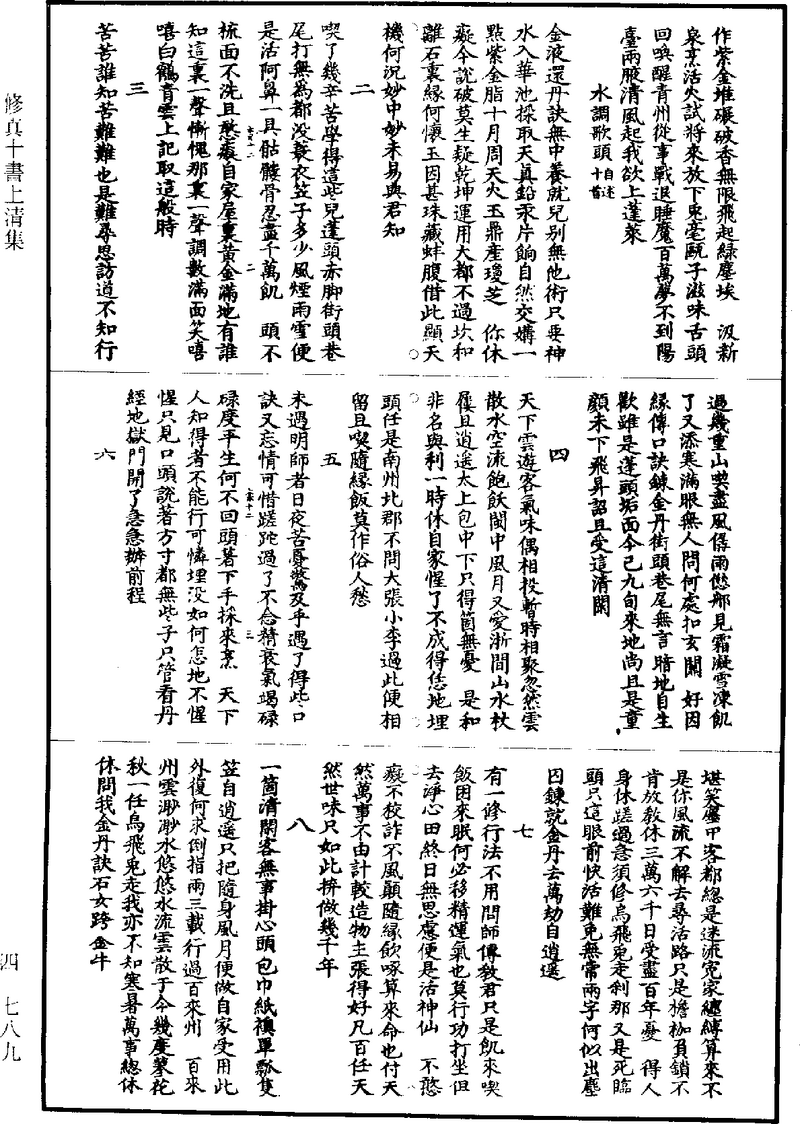 作紫金堆碾破香無限飛起綠塵埃　汲新
泉烹活火試將來放下兔毫甌子滋味舌頭
回喚醒青州從事戰退睡魔百萬夢不到陽
臺兩腋清風起我欲上蓬萊
水調歌頭自述十首
金液還丹訣無中養就兒別無他術只要神
水入華池採取天真鉛汞片餉自然交媾一
點紫金脂十月周天火玉鼎產瓊芝　你休
癡今說破莫生疑乾坤運用大都不過坎和
離石裏緣何懷玉因甚珠藏蚌腹借此顯天
機何況妙中妙未易與君知
二
喫了幾辛苦學得這些兒蓬頭赤脚街頭巷
尾打無為都沒蓑衣笠子多少風煙雨雪便
是活阿鼻一具骷髏骨忍盡千萬飢　頭不
梳面不洗且憨癡自家屋裏黃金滿地有誰
知這裏一聲慚愧那裏一聲調數滿面笑嘻
嘻白鶴青雲上記取這般時
三
苦苦誰知苦難難也是難尋思訪道不知行
過幾重山喫盡風僝雨僽那見霜凝雪凍飢
了又添寒滿眼無人問何處扣玄關　好因
緣傳口訣鍊金丹街頭巷尾無言暗地自生
歡雖是蓬頭垢面今已九旬來地尚且是童
顏未下飛昇詔且受這清閑
四
天下雲遊客氣味偶相投暫時相聚忽然雲
散水空流飽飫閩中風月又愛浙間山水杖
屨且逍遙太上包中下只得箇無憂　是和
非名與利一時休自家惺了不成得恁地埋
頭任是南州北郡不問大張小李過此便相
留且喫隨緣飯莫作俗人愁
五
未遇明師者日夜苦憂驚及乎遇了得些口
訣又忘情可惜蹉跎過了不念精衰氣竭碌
碌度平生何不回頭著下手採來烹　天下
人知得者不能行可憐埋沒如何怎地不惺
惺只見口頭說著方寸都無些子只管看丹
經地獄門開了急急辦前程
六
堪笑塵中客都總是迷流冤家纏縛算來不
是你風流不解去尋活路只是擔枷負鎖不
肯放教休三萬六千日受盡百年憂　得人
身休蹉過急須修烏飛兔走剎那又是死臨
頭只這眼前快活難免無常兩字何似出塵
囚鍊就金丹去萬劫自逍遙
七
有一修行法不用問師傳教君只是飢來喫
飯困來眠何必移精運氣也莫行功打坐但
去淨心田終日無思慮便是活神仙　不憨
癡不狡詐不風顛隨緣飲啄算來命也付天
然萬事不由計較造物主張得好凡百任天
然世味只如此拚做幾千年
八
一箇清閑客無事掛心頭包巾紙襖單瓢隻
笠自逍遙只把隨身風月便做自家受用此
外復何求倒指兩三載行過百來州　百來
州雲渺渺水悠悠水流雲散于今幾度蓼花
秋一任烏飛兔走我亦不知寒暑萬事總休
休問我金丹訣石女跨金牛
修真十書上清集
四　七八九